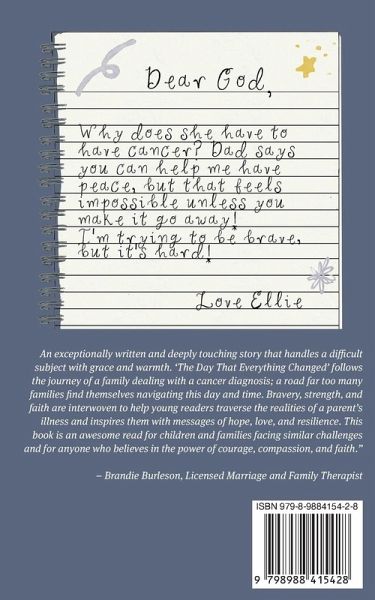 Dear God,
Why does she have to
have cancer? Dad says
you can help me have
peace, but that feels
impossible unless you
make it go away!
I'm trying to be brave,
but it's hard!
Love Ellie
An exceptionally written and deeply touching story that handles a difficult
subject with grace and warmth. ‘The Day That Everything Changed’ follows
the journey of a family dealing with a cancer diagnosis; a road far too many
families find themselves navigating this day and time. Bravery, strength, and
faith are interwoven to help young readers traverse the realities of a parent's
illness and inspires them with messages of hope, love, and resilience. This
book is an awesome read for children and families facing similar challenges
and for anyone who believes in the power of courage, compassion, and faith.”
– Brandie Burleson, Licensed Marriage and Family Therapist
ISBN 979-8-9884154-2-8
9 798988 415428